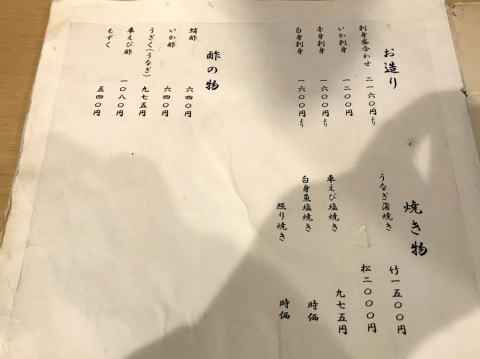 お造り
刺身盛合わせ 二一六〇円より
いか刺身 一二〇〇円
赤身刺身 一六〇〇円より
白身刺身 一六〇〇円より
酢の物
蛸酢 六四〇円
いか酢 六四〇円
うざく(うなぎ) 九七五円
車えび酢 一〇八〇円
もずく 五四〇円
焼き物
うなぎ蒲焼き 竹一五〇〇円
松二〇〇〇円
車えび塩焼き 九七五円
白身魚塩焼き 時価
照り焼き 時価